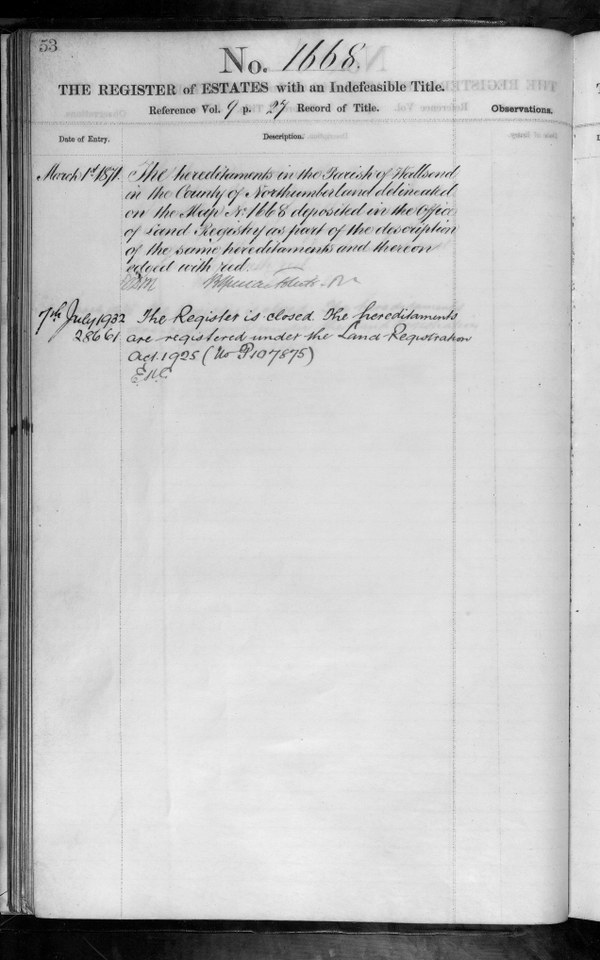 53
No. 1668.
THE REGISTER of ESTATES with an Indefeasible Title.
Reference Vol. 9 p. 27 Record of Title.
Observations.
Date of Entry.
Description.
March 1st 1871. The hereditaments in the Parish of Wallsend
in the County of Northumberland delineated
on the Map No. 1668 deposited in the Office
of Land Registry as part of the description
of the same hereditaments and thereon
edged with red.
7th July 1932 The Register is closed. The hereditaments
28661 are registered under the Land Registration
Act. 1925 (No P107875)